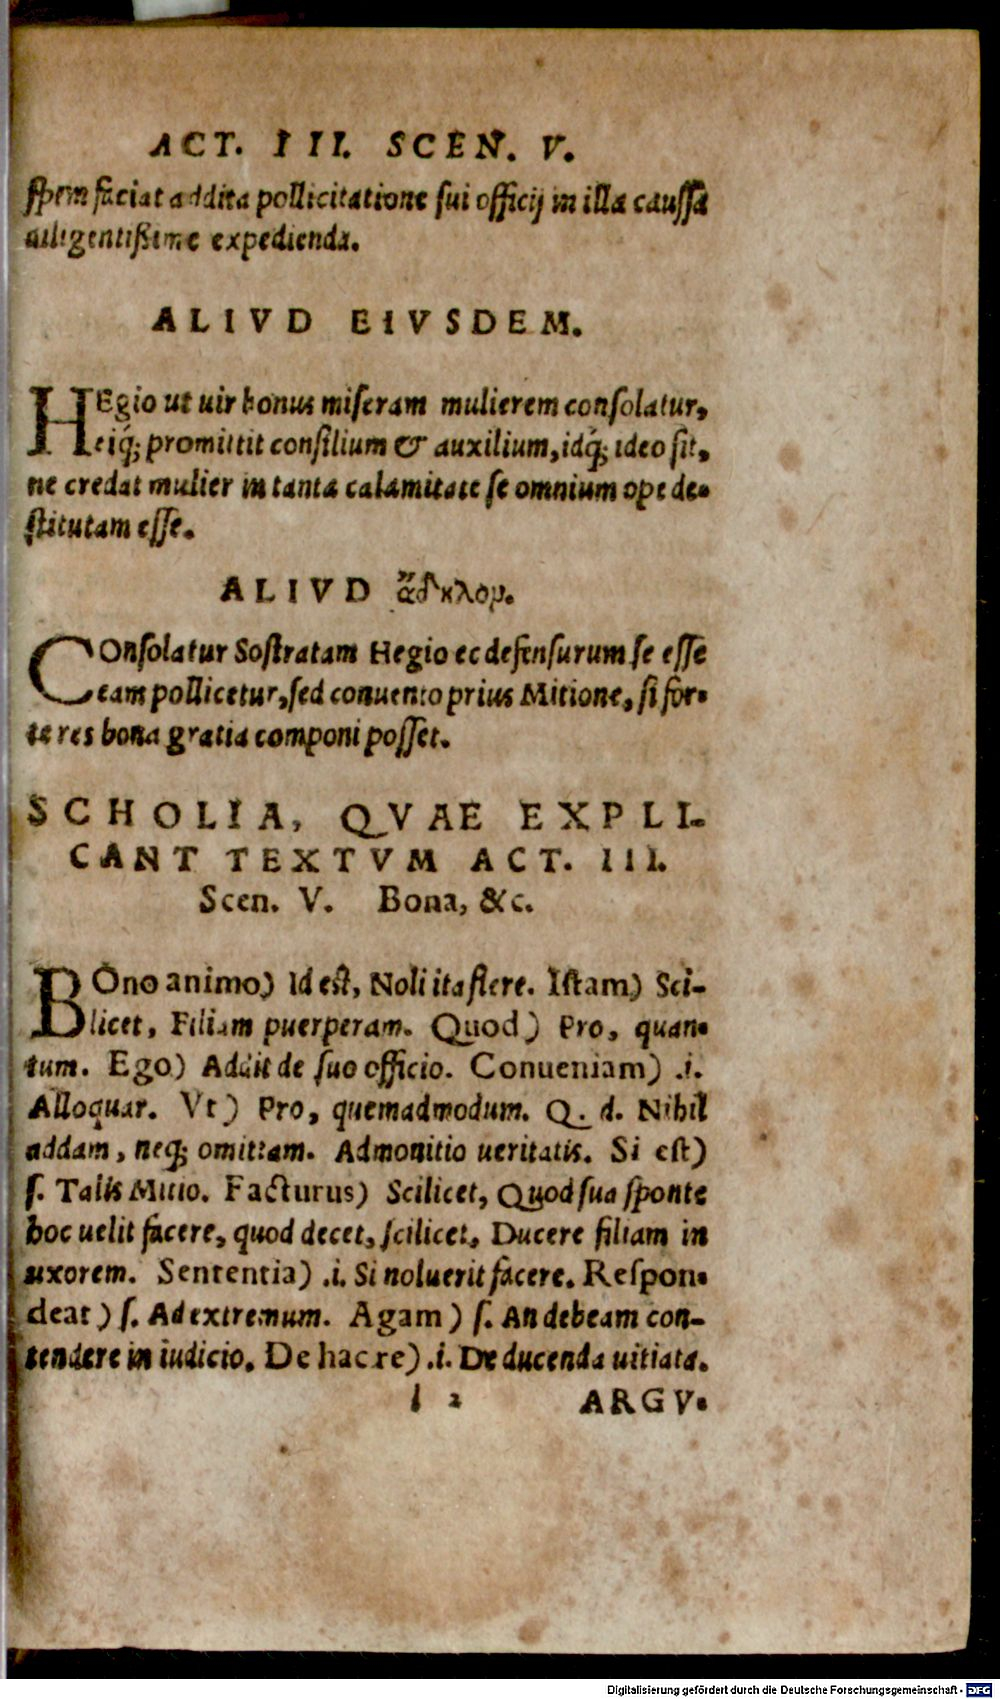 ACT. III. SCEN. V.
spem faciat addita pollicitatione sui officij in illa caussa
diligentißime expedienda.
ALIVD EIVSDEM.
HEgio ut uir bonus miseram mulierem consolatur,
eiq́; promittit consilium & auxilium, idq́; ideo fit,
ne credat mulier in tanta calamitate se omnium ope de-
stitutam esse.
ALIVD
COnsolatur Sostratam Hegio ec defensurum se esse
eam pollicetur, sed conuento prius Mitione, si for-
te res bona gratia componi posset.
SCHOLIA, QVAE EXPLI-
CANT TEXTVM ACT. III.
Scen. V. Bona, &c.
BOno animo) Id est, Noli ita flere. Istam) Sci-
licet, Filiam puerperam. Quod) Pro, quan-
tum. Ego) Addit de suo officio. Conueniam) .i.
Alloquar. Vt) Pro, quemadmodum. Q. d. Nihil
addam, neq; omittam. Admonitio ueritatis. Si est)
s. Talis Mitio. Facturus) Scilicet, Quod sua sponte
hoc uelit facere, quod decet, scilicet, Ducere filiam in
uxorem. Sententia) .i. Si noluerit facere. Respon-
deat) s. Ad extremum. Agam) s. An debeam con-
tendere in iudicio. De hac re) .i. De ducenda uitiata.
l 2 ARGV-
Digitalisierung gefördert durch die Deutsche Forschungsgemeinschaft - DFG